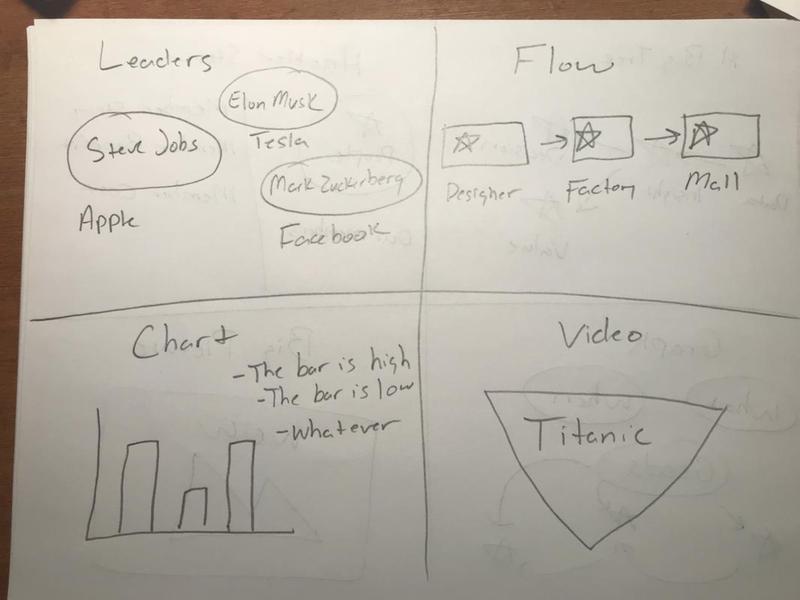 Leaders
Elon Musk
Tesla
Steve Jobs
Apple
Mark Zuckirberg
Facebook
Flow
Designer
Factory
Mall
Chart
-The bar is high
-The bar is low
-Whatever
Video
Titanic